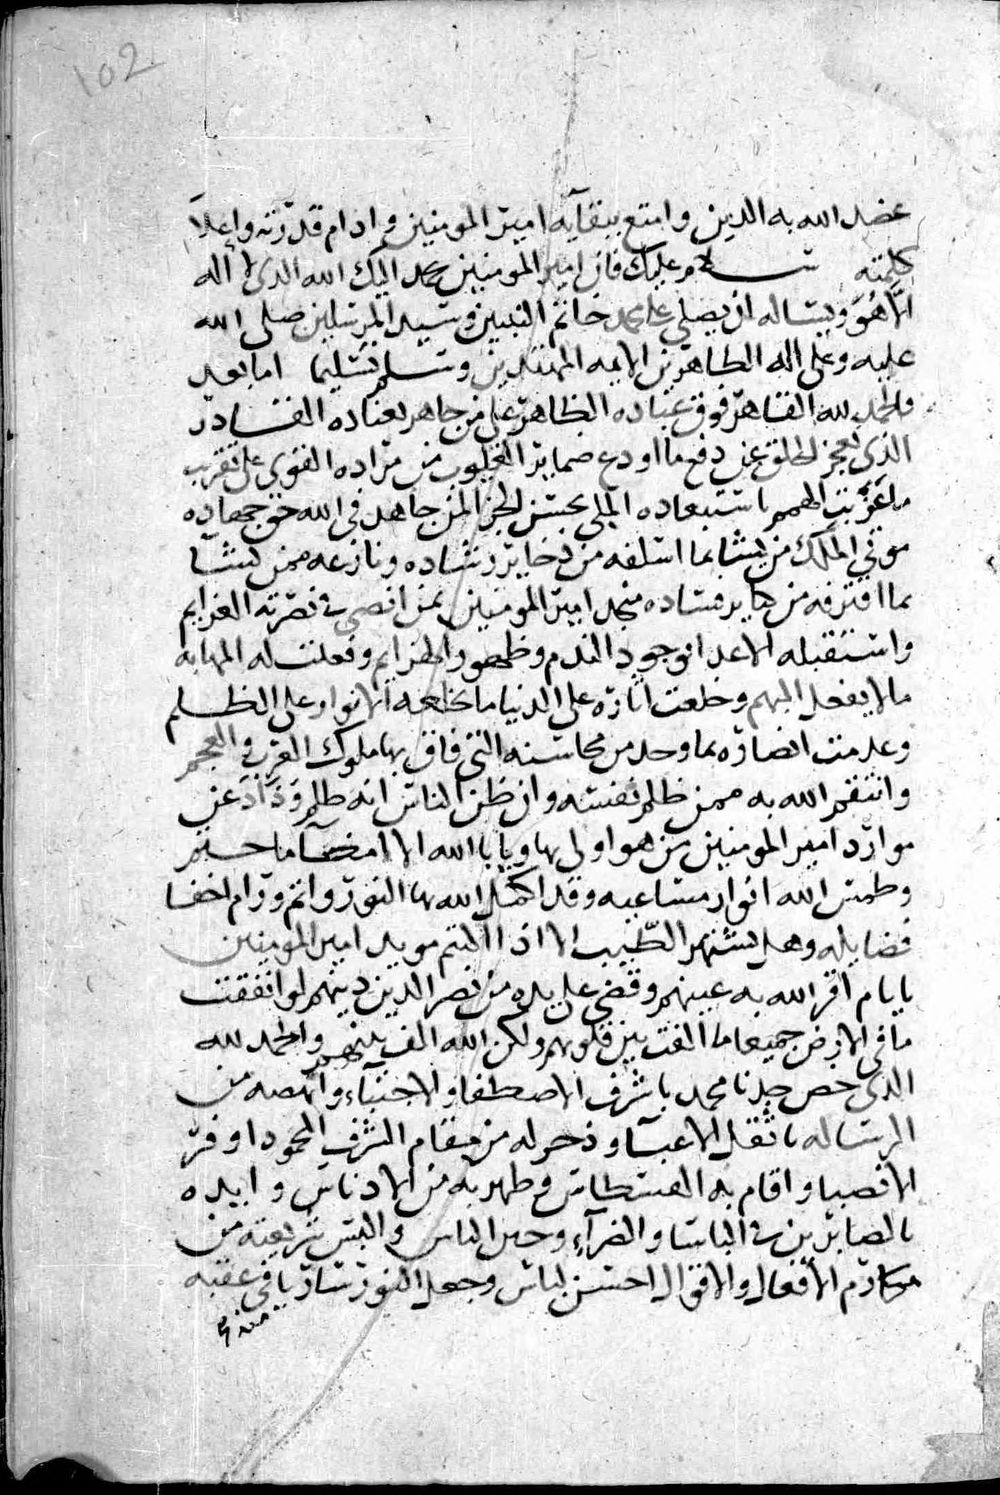 102
عضد الله به الدين وامتع ببقايه امير المومنين وادام قدرته واعلا
كلمته سلام عليك فان امير المومنين يحمد اليك الله الذي لا اله
الا هو ويساله ان يصلي على محمد خاتم النبيين وسيد المرسلين صلى الله
عليه وعلى اله الطاهرين الايمه المهتدين وسلم تسليما اما بعد
فالحمد لله القاهر فوق عباده الظاهر على من جاهر بعناده القادر
الذي يعجز الخلق عن دفع ما اودع ضماير القلوب من مراده القوي على تقريب
ما عزبت الهمم باستبعاده الملي بحسن الجزا لمن جاهد في الله حق جهاده
موتي الملك من يشا بما اسلفه من ذخاير رشاده ونازعه ممن يشا
بما اقترفه من كباير فساده منجد امير المومنين بمن امضى في نصرته العزايم
واستقبله الاعدا بوجود الندم وظهور الهزايم وفعلت له المهابه
مالا يفعل البهم وخلعت اناره على الدنيا ما تخلعه الانوار على الظلم
وعدمت انضاره بما وجد من محاسنه التي فاق بها ملوك العرب والعجم
وانتقم الله به ممن ظلم نفسه وان ظن الناس انه ظلم وذاد عن
موارد امير المومنين من هو اولى بها ويابا الله الا امضا ما حتم
وطمس الله انوار مساعيه وقد اكمل الله بها النور واتم ورام اخفا
فضايله وهل يشتهر الطيب الا اذا اكتتم مويد امير المومنين
بايام اقر الله به عينهم وقضى على يده من نصر الدين دينهم لو انفقت
ما في الارض جميعا ما الفت بين قلوبهم ولكن الله الف بينهم والحمد لله
الذي خص جدنا محمد بشرف الاصطفا والاجتباء وانهضه من
الرساله باثقل الاعبا وذخر له من مقام الشرف المحمود اوفر
الاقصبا واقام به القسطاس وطهر به من الادناس وايده
بالصابرين في الباسا والضراء وحين الباس والبس شريعته من
مكارم الافعال والاقوال احسن لباس وجعل النور ساريا في عقبه